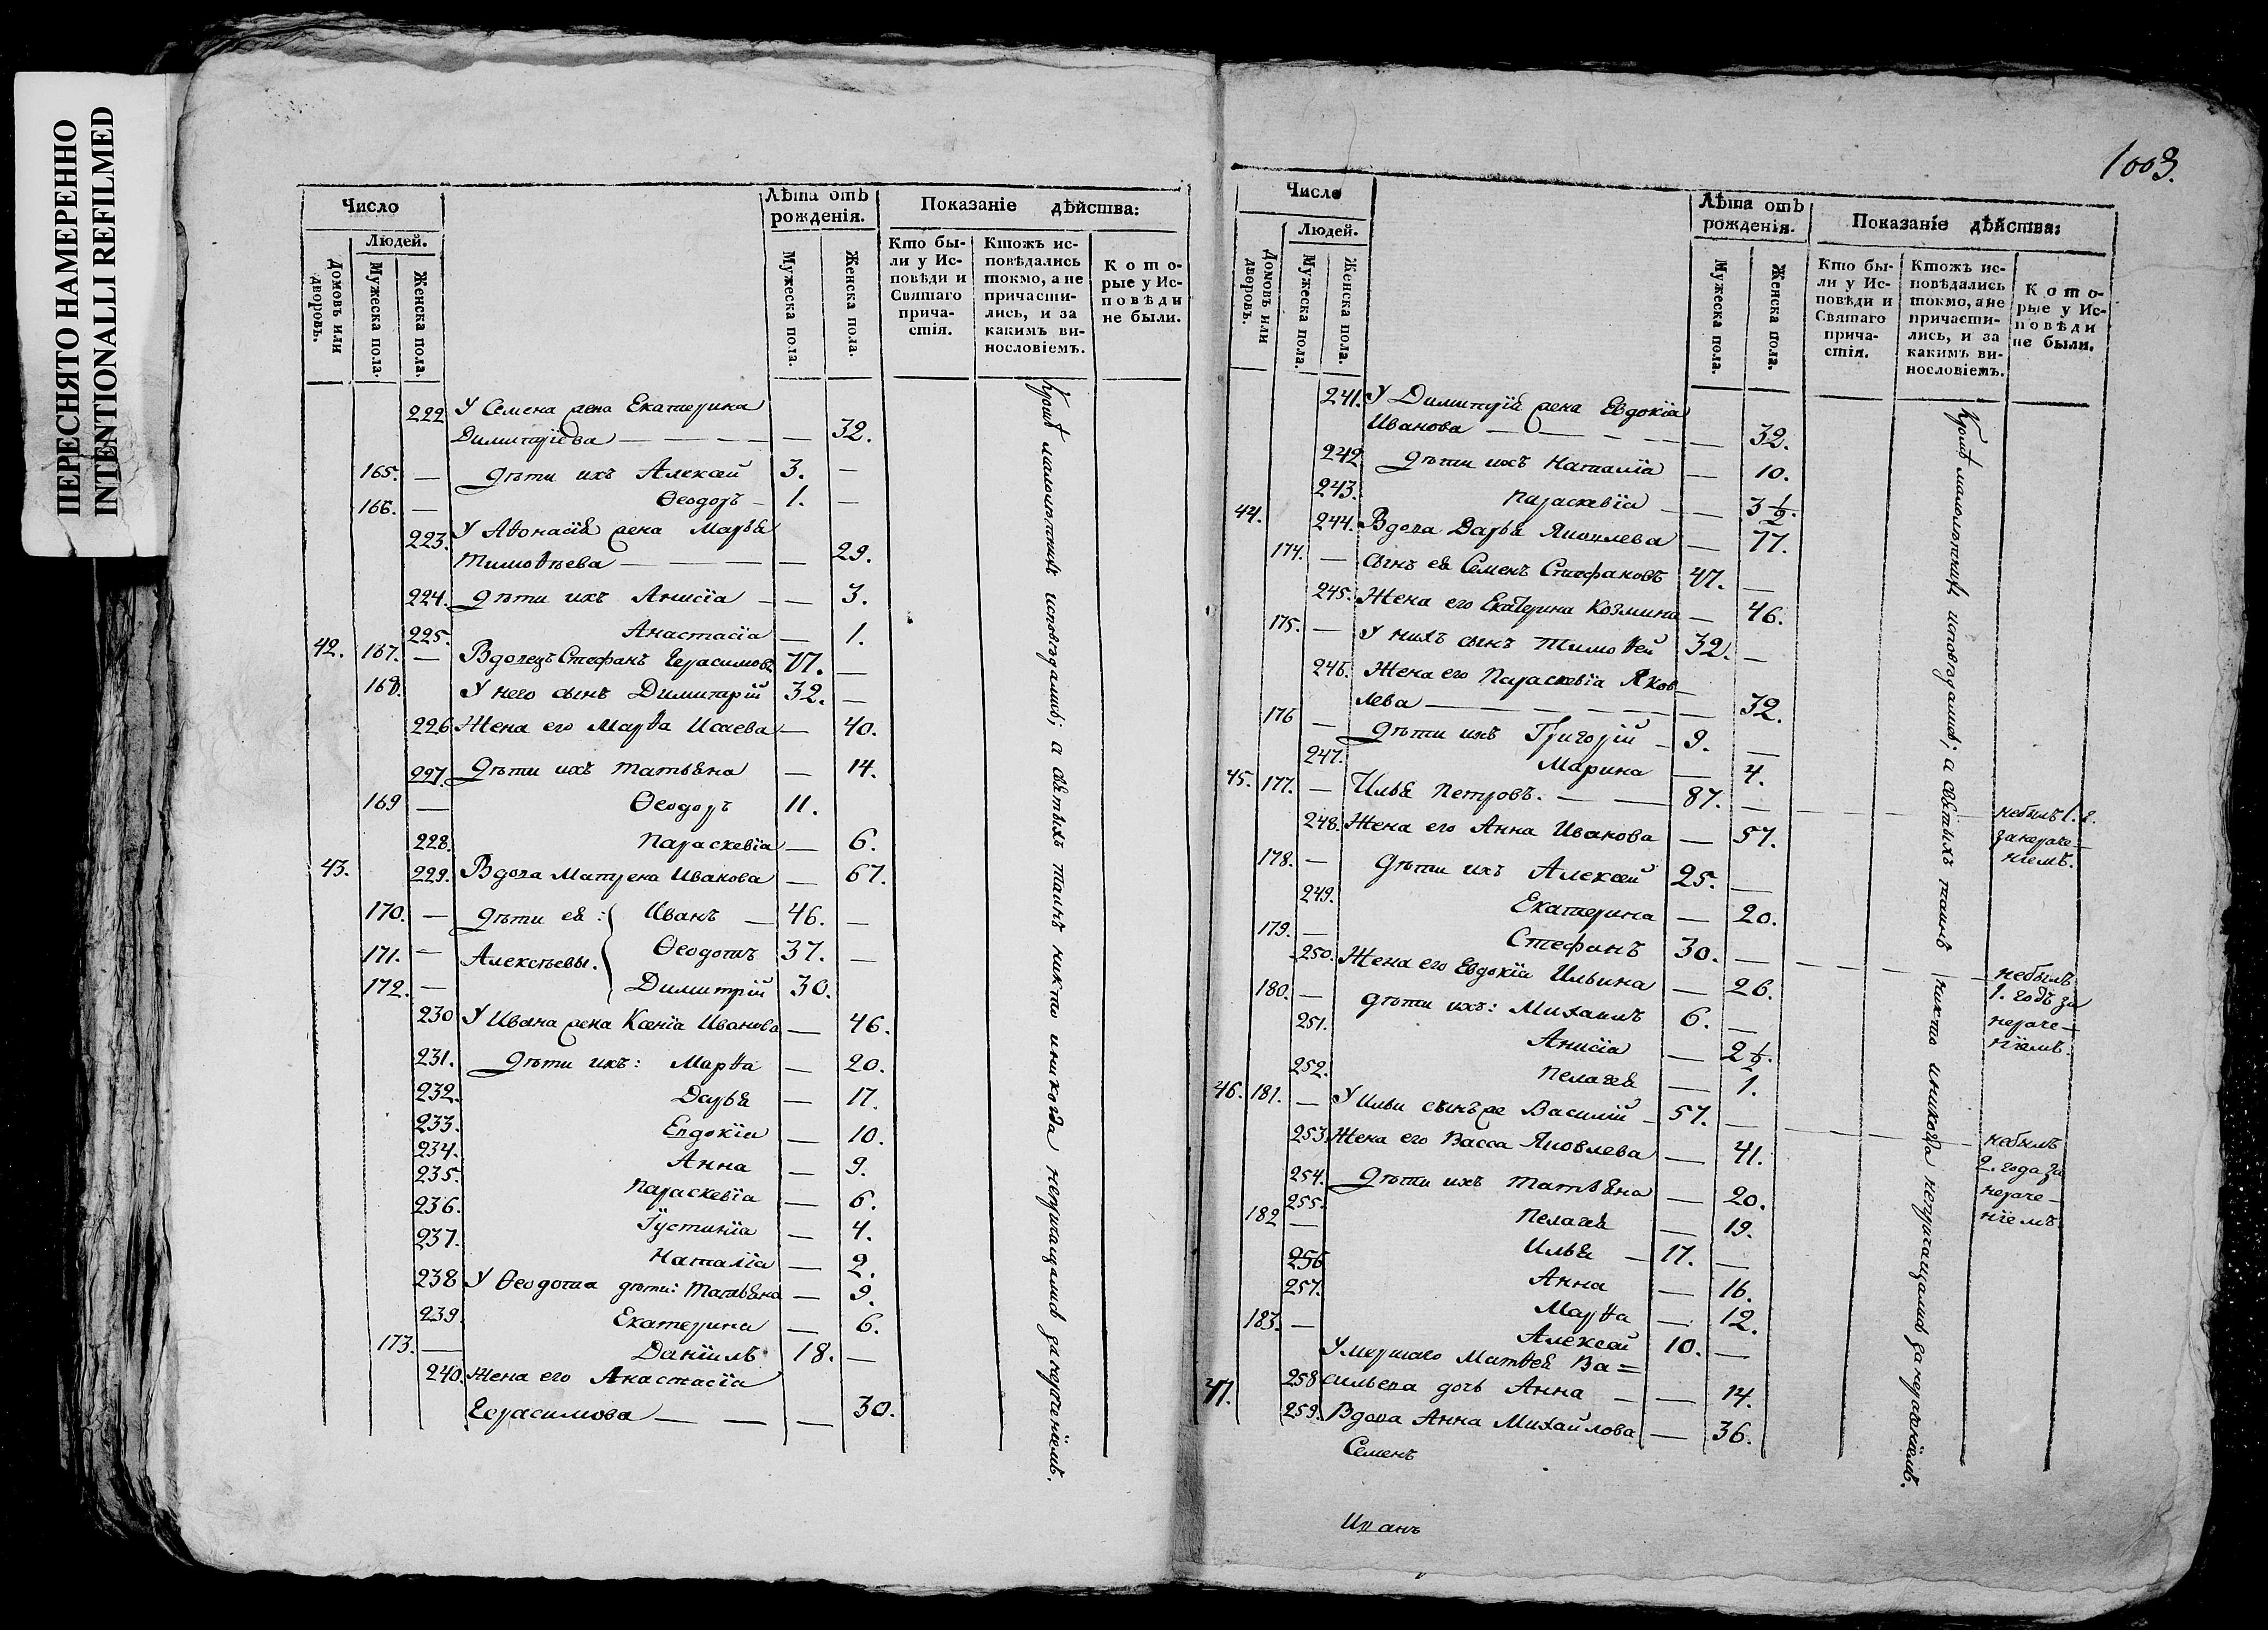 ПЕРЕСНЯТО НАМЕРЕННО
INTENTIONALLI REFILMED
Число
Людей.
Домовъ или дворовъ.
Мужеска пола.
Женска пола.
Лѣта отъ рожденія.
Мужеска пола.
Женска пола.
Показаніе дѣйства:
Кто бы-
ли у Ис-
повѣди и
Святаго
прича-
стія.
Ктожъ ис-
повѣдались
токмо, а не
причасти-
лись, и за
какимъ ви-
нословіемъ.
Кото-
рые у Ис-
повѣди
не были.
222 У Семена жена Екатерина
Димитріева — — — — — 32.
165. — Дѣти ихъ Алексей 3. —
166. — Ѳеодоръ — 1. —
223. У Аѳонасія жена Марья
Тимоѳеева — — — — 29.
224. Дѣти ихъ Анисія — — 3.
225. Анастасія — 1.
42. 167. — Вдовецъ Стефанъ Герасимовъ 77. —
168. У него сынъ Димитрій 32. —
226 Жена его Марѳа Исаева — 40.
227. Дѣти ихъ Татьяна — 14.
169 — Ѳеодоръ 11.
228. Параскевіа — 6.
43. 229. Вдова Матрена Иванова — 67.
170. — Дѣти ея: Иванъ — 46. —
171. — Алексѣевы. Ѳеодотъ 37. —
172. — Димитрій 30.
230 У Ивана жена Ксенія Иванова — 46.
231. Дѣти ихъ: Марѳа — 20.
232. Дарья — 17.
233. Евдокіа — 10.
234. Анна — 9.
235. Параскевіа — 6.
236. Іустиніа — 4.
237. Наталіа — 2.
238 У Ѳеодота дѣти: Татьяна — 9.
239. Екатерина — 6.
173. — Даніилъ 18. —
240. Жена его Анастасіа
Герасимова — — — 30.
Кромѣ малолѣтнихъ исповѣдались; а святыхъ таинъ никто и никогда непричащались за нерачініемъ.
1003.
Число
Людей.
Домовъ или дворовъ.
Мужеска пола.
Женска пола.
Лѣта отъ рожденія.
Мужеска пола.
Женска пола.
Показаніе дѣйства:
Кто бы-
ли у Ис-
повѣди и
Святаго
прича-
стія.
Ктожъ ис-
повѣдались
токмо, а не
причасти-
лись, и за
какимъ ви-
нословіемъ.
Кото-
рые у Ис-
повѣди
не были.
241. У Димитрія жена Евдокіа
Иванова — — — — — 32.
242 Дѣти ихъ Наталіа — 10.
243. Параскевіа — — 3 1/2.
44. 244. Вдова Дарья Яковлева — 77.
174. — Сынъ ея Семенъ Стефановъ 47. —
245. Жена его Екатерина Козмина — 46.
175. — У нихъ сынъ Тимоѳей 32. —
246. Жена его Параскевіа Яков-
лева — — — — — 32.
176 — Дѣти ихъ Григорій — 9. —
247. Марина — 4.
45. 177. — Илья Петровъ. — — 87. — небылъ 1. г.
за нераче-
ніемъ.
248. Жена его Анна Иванова — 57.
178. — Дѣти ихъ Алексей 25. —
249. Екатерина — 20.
179. — Стефанъ 30. — небылъ
1. годъ за
нераче-
ніемъ.
250. Жена его Евдокіа Ильина — 26.
180. — Дѣти ихъ: Михаилъ 6. —
251. Анисіа — 2 1/2.
252. Пелагея — 1.
46. 181. — У Ильи сынъ же Василій — 57. — небылъ
2. года за
нераче-
ніемъ.
253. Жена его Васса Яковлева — 41.
254. Дѣти ихъ Татьяна — 20.
255. Пелагея — 19.
182 — Илья — 17. —
256 Анна — 16.
257. Марѳа — 12.
183. — Алексей 10. —
Умершаго Матѳея Ва=
258 сильева дочь Анна — — 14.
47. 259. Вдова Анна Михайлова — 36.
Семенъ
Иванъ
Кромѣ малолѣтнихъ исповѣдались; а святыхъ таинъ никто и никогда непричащались за нерачініемъ.